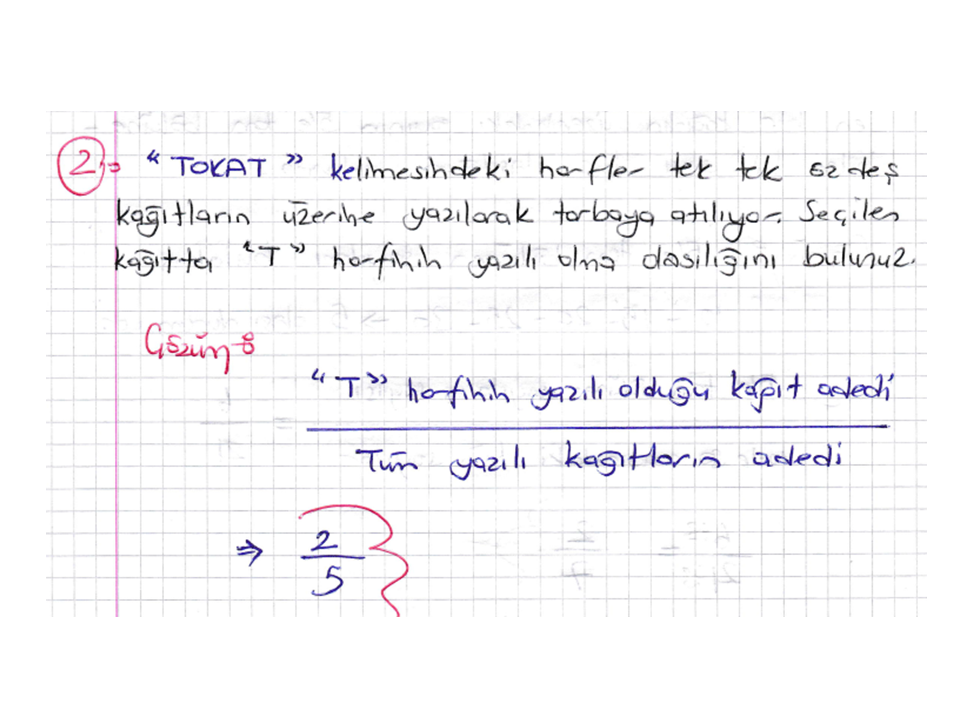 2) "TOKAT" kelimesindeki harfler tek tek özdeş
kağıtların üzerine yazılarak torbaya atılıyor. Seçilen
kağıtta "T" harfinin yazılı olma olasılığını bulunuz.
Çözüm:
"T" harfinin yazılı olduğu kağıt adedi
Tüm yazılı kağıtların adedi
⇒ 2
5